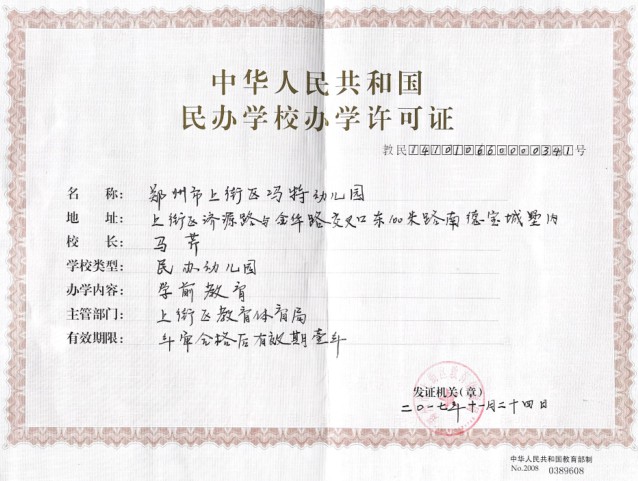 中华人民共和国
民办学校办学许可证
教民141010660000341号
名　　称：郑州市上街区冯特幼儿园
地　　址：上街区济源路与金华路交叉口东100米路南德宝城墅内
校　　长：马芹
学校类型：民办幼儿园
办学内容：学前教育
主管部门：上街区教育体育局
有效期限：年审合格后有效期壹年
发证机关（章）
二〇一七年十一月二十四日
中华人民共和国教育部制
No.2008 0389608